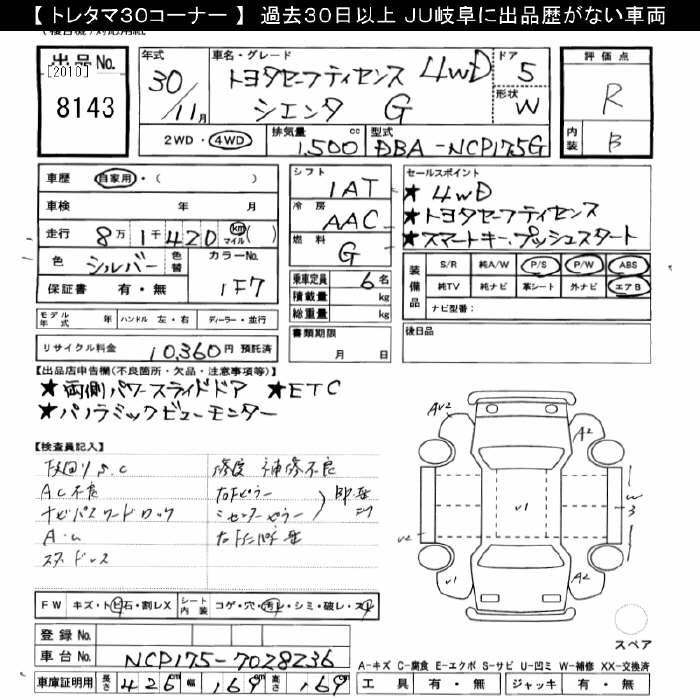 【 トレタマ30コーナー 】 過去30日以上 JU岐阜に出品歴がない車両
出品No.
[2010]
8143
年式
30/11月
車名・グレード
トヨタセーフティセンス 4WD
シエンタ G
ドア
5
形状
W
2WD・4WD
排気量
1,500 cc
型式
DBA-NCP175G
評価点
R
内装
B
車歴 自家用・( )
車検 年 月
走行 8万1千420 km マイル ( )
色 シルバー 色替 カラーNo. 1F7
保証書 有・無
シフト
1AT
冷房
AAC
燃料
G
乗車定員 6名
積載量 kg
総重量 kg
セールスポイント
★4WD
★トヨタセーフティセンス
★スマートキー、プッシュスタート
装備品
S/R 純A/W P/S P/W ABS
純TV 純ナビ 革シート 外ナビ エアB
ナビ型番:
モデル年式 年 ハンドル 左・右 ディーラー・並行
リサイクル料金 10,360円 預託済
書類期限
月 日
後日品
【出品店申告欄(不良箇所・欠品・注意事項等)】
★両側パワースライドドア ★ETC
★パノラミックビューモニター
【検査員記入】
AC不良
ナビパスワードロック
修復 補修不良
右Fピラー
右センターピラー
スタッドレス
AU2
A2
U1
W3
U2
U1
A2
スペア
FW キズ・トビ石・割レX シート内装 コゲ・穴・汚レ・シミ・破レ・スレ
登録No.
車台No. NCP175-7028236
車庫証明用 長さ 426cm 幅 169cm 高さ 169cm
A-キズ C-腐食 E-エクボ S-サビ U-凹ミ W-補修 XX-交換済
工具 有・無 ジャッキ 有・無